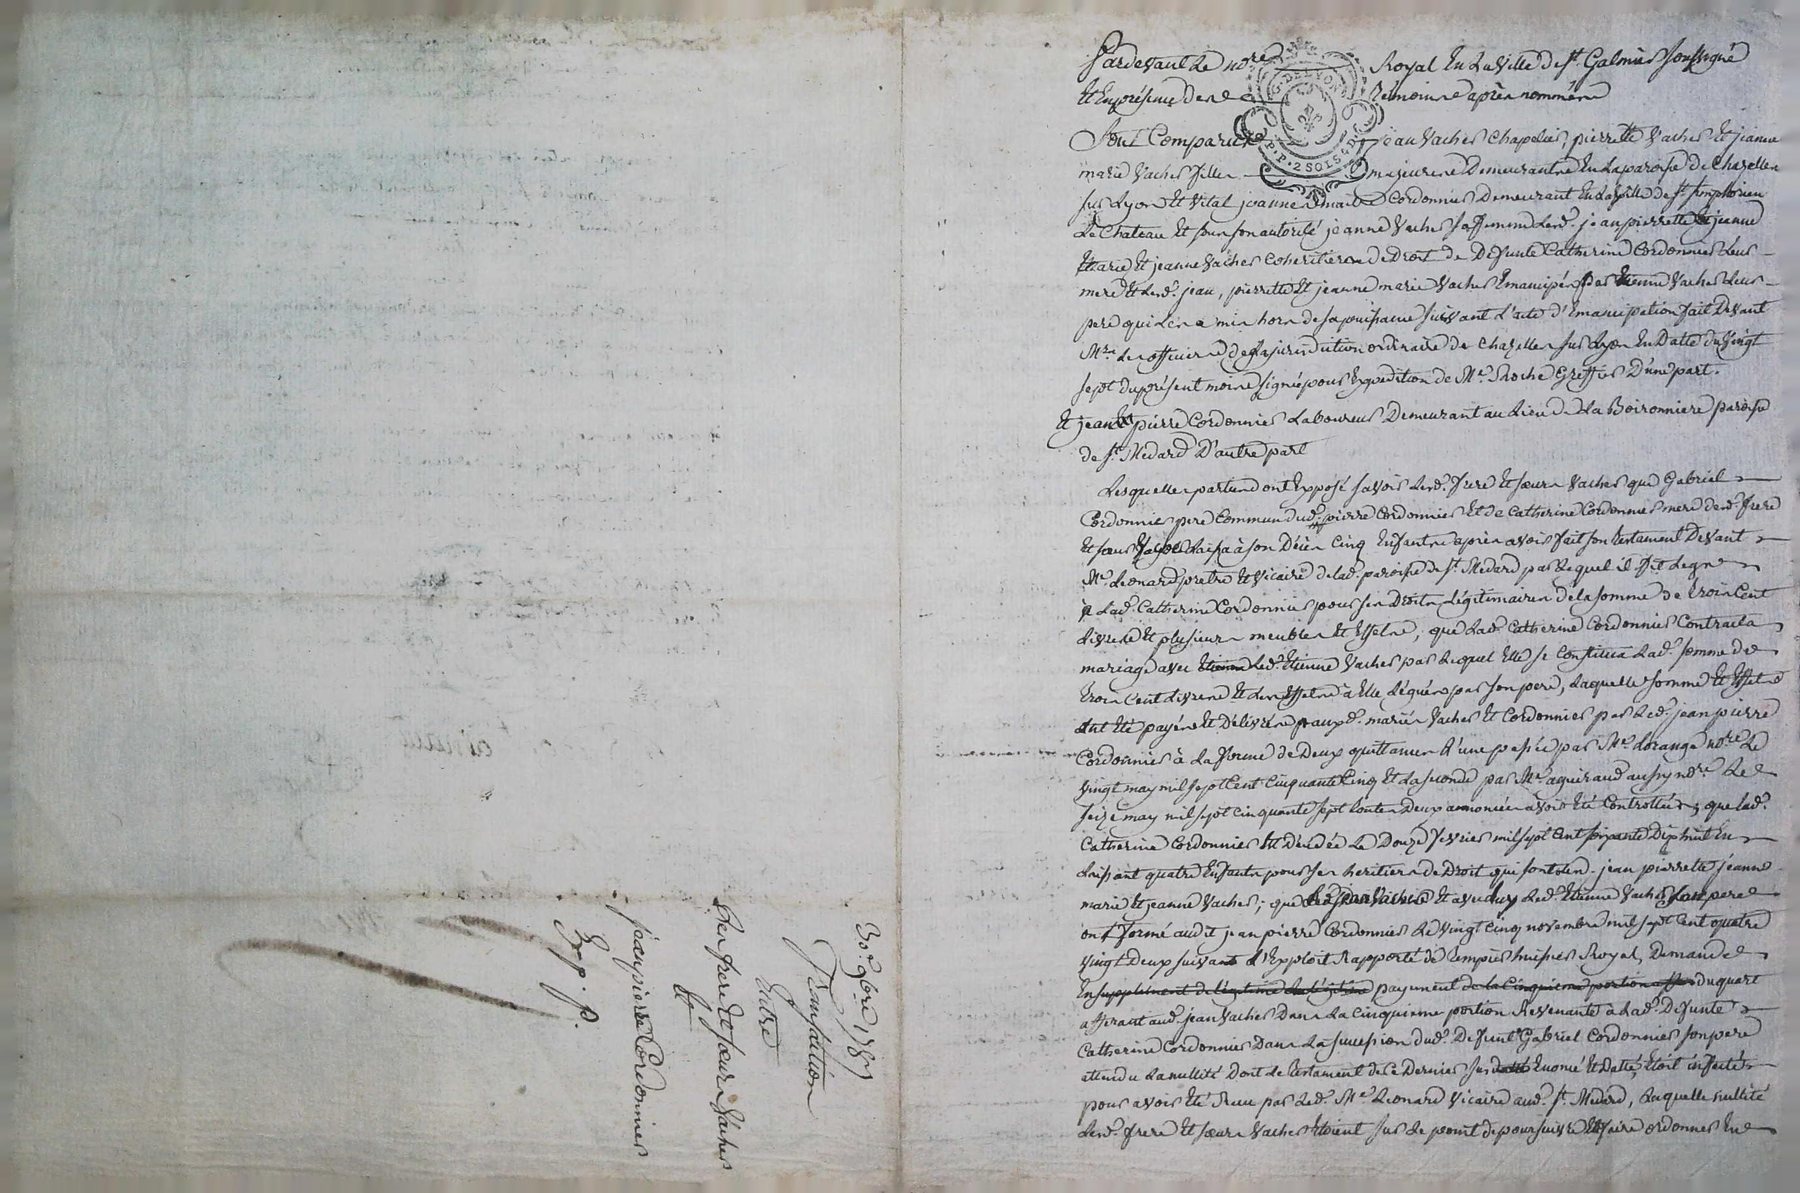 Pardevant Le no.re Royal En La Ville de St. Galmier soussigné
Et En présence des temoins après nommés
Sont Comparus jean Vacher Chapelier, pierrette Vacher Et jeanne
marie Vacher filles majeures Demeurantes En La paroisse de Chazelles
sur Lyon Et Vital joannes mait. Cordonnier Demeurant En La Ville de St. simphorien
Le Chateau Et sous son autorité jeanne Vacher sa femme Lesd. jean pierrette Et jeanne
Marie Et jeanne Vacher Coheritiers de Droit de Defunte Catherine Cordonnier Leur
mere Et Lesd. jean, pierrette Et jeanne marie Vacher Emancipés par Etienne Vacher Leur
pere qui Les a mis hors de sa puissance suivant L'acte d'Emancipation fait Devant
Mrs. Les officiers de La jurisdiction ordinaire de Chazelles sur Lyon En Datte du Vingt
sept du présent mois signé pour Expedition de Me. Proche Greffier D'une part.
Et jean pierre Cordonnier Laboureur Demeurant au Lieu de La Boironniere paroisse
de St. Medard D'autre part
Lesquelles parties ont Exposé savoir Lesd. frere Et soeurs Vacher que Gabriel
Cordonnier pere Commun dud. pierre Cordonnier Et de Catherine Cordonnier mere desd. frere
Et soeurs Vacher Laissa à son Décès Cinq Enfants après avoir fait son testament Devant
Me. Leonard pretre Et Vicaire de lad. paroisse de St. Medard par Lequel il fit Legs
a Lad. Catherine Cordonnier pour ses Droits Légitimaires de la somme de trois Cent
Livres Et plusieurs meubles Et Effets, que Lad. Catherine Cordonnier Contracta
mariage avec Etienne Led. Etienne Vacher par Lequel Elle se Constitua Lad. somme de
trois Cent Livres Et Les Effets à Elle Légués par son pere, Laquelle somme Et Effets
ont Eté payés Et Délivrés auxd. mariés Vacher Et Cordonnier par Led. jean pierre
Cordonnier à La forme de Deux quittances L'une passée par Me. Lorange no.re Le
vingt may mil sept Cent Cinquante Cinq Et La seconde par Me. aguiraud aussy no.re Le
seize may mil sept Cinquante sept toutes Deux annoncées avoir Eté Controllées, que Lad.
Catherine Cordonnier Est Décédée Le Douze fevrier mil sept Cent soixante Dix huit En
Laissant quatre Enfants pour ses heritiers de Droit qui sont Lesd. jean pierrette jeanne
marie Et jeanne Vacher; que Led. jean Vacher Et avec luy Led. Etienne Vacher son pere
ont formé audit jean pierre Cordonnier Le vingt Cinq novembre mil sept Cent quatre
vingt Deux suivant L'Exploit Rapporté de Tempier huissier Royal, Demande
En supplement de Légitime payement de la Cinquieme portion du quart
afferant aud. jean Vacher Dans La Cinquieme portion Revenante à Lad. Defunte
Catherine Cordonnier Dans La succession dud. Defunt Gabriel Cordonnier son pere
attendu La nullité Dont Le testament de Ce Dernier sus Enoncé Et Datté, Etoit infecté
pour avoir Eté Reçu par Led. Me. Leonard Vicaire aud. St. Medard, Laquelle nullité
Lesd. frere Et soeurs Vacher Etoient sur Le point de poursuivre Et faire ordonner En
G. DE LYON
P.P. 2 SOLS 4 D
30e. 9bre 1787
Transaction
Entre
Les frere Et soeurs Vacher
Et
jean pierre Cordonnier
Exp. p.